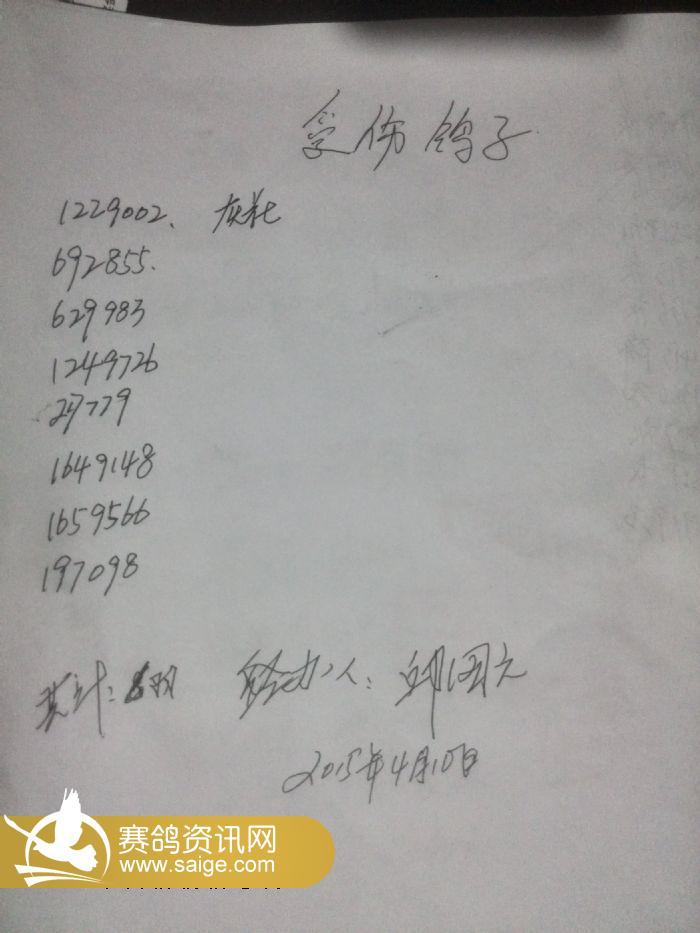 受伤鸽子
1229002、
692855.
629983
1249726
1649148
1659566
197098
共计: 8羽 经办人: 邱国元
2015年4月10日
赛鸽资讯网
www.saige.com